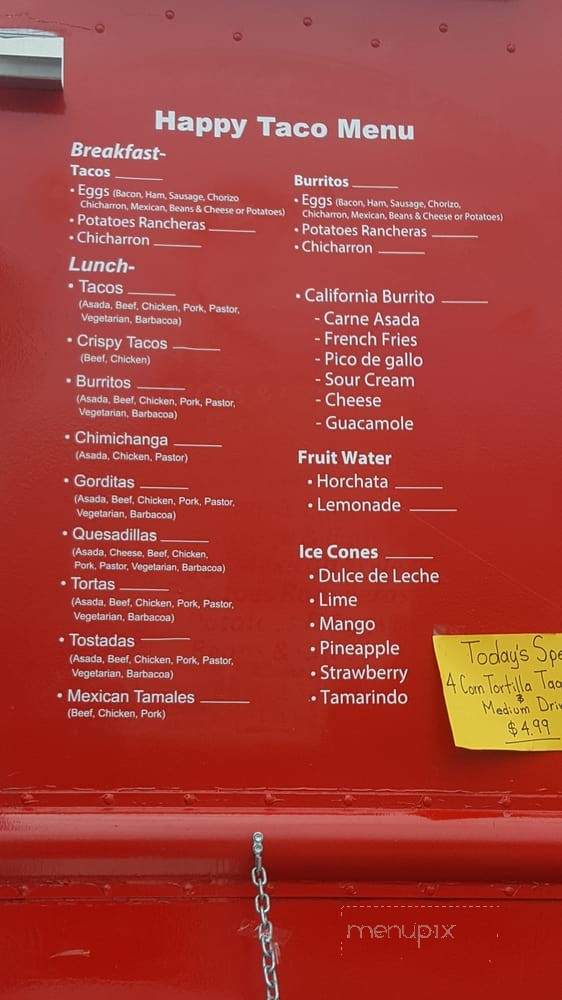 Happy Taco Menu
Breakfast-
Tacos
• Eggs (Bacon, Ham, Sausage, Chorizo
Chicharron, Mexican, Beans & Cheese or Potatoes)
• Potatoes Rancheras
• Chicharron
Lunch-
• Tacos
(Asada, Beef, Chicken, Pork, Pastor,
Vegetarian, Barbacoa)
• Crispy Tacos
(Beef, Chicken)
• Burritos
(Asada, Beef, Chicken, Pork, Pastor,
Vegetarian, Barbacoa)
• Chimichanga
(Asada, Chicken, Pastor)
• Gorditas
(Asada, Beef, Chicken, Pork, Pastor,
Vegetarian, Barbacoa)
• Quesadillas
(Asada, Cheese, Beef, Chicken,
Pork, Pastor, Vegetarian, Barbacoa)
• Tortas
(Asada, Beef, Chicken, Pork, Pastor,
Vegetarian, Barbacoa)
• Tostadas
(Asada, Beef, Chicken, Pork, Pastor,
Vegetarian, Barbacoa)
• Mexican Tamales
(Beef, Chicken, Pork)
Burritos
• Eggs (Bacon, Ham, Sausage, Chorizo,
Chicharron, Mexican, Beans & Cheese or Potatoes)
• Potatoes Rancheras
• Chicharron
• California Burrito
- Carne Asada
- French Fries
- Pico de gallo
- Sour Cream
- Cheese
- Guacamole
Fruit Water
• Horchata
• Lemonade
Ice Cones
• Dulce de Leche
• Lime
• Mango
• Pineapple
• Strawberry
• Tamarindo
Today's Spe
4 Corn Tortilla Tac
&
Medium Dri
$4.99
menupix